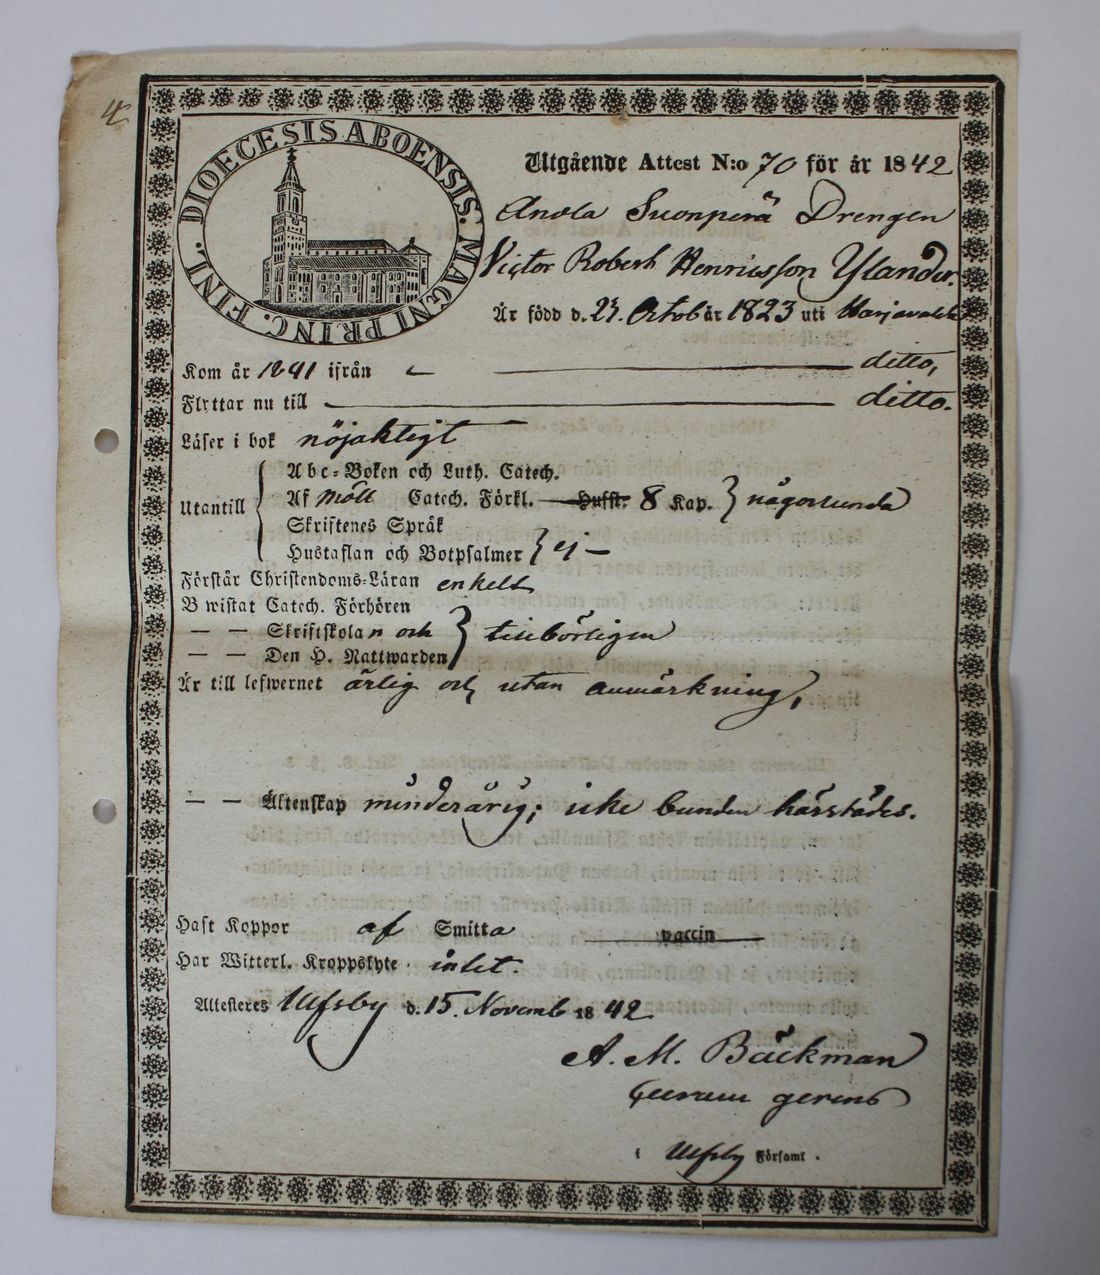 4.
DIOECESIS ABOENSIS. MAGNI PRINC. FINL.
Utgående Attest N:o 70 för år 1842
Anola Suonperä Drengen
Victor Robert Henricsson Ylander.
Är född d. 23. Octob år 1823 uti Harjavalda
Kom år 1841 ifrån ditto,
Flyttar nu till ditto.
Läser i bok nöjaktigt
Abc-Boken och Luth. Catech.
Utantill Af Möll Catech. Förkl. Husst. 8 Kap. någorlunda
Skriftenes Språk
Hustaflan och Botpsalmer ej —
Förstår Christendoms-Läran enkelt
Bwistat Catech. Förhören
— — Skriftskolan och tillbörligen
— — Den H. Nattwarden
Är till lefwernet ärlig och utan anmärkning,
— — Äktenskap minderårig; icke bunden härstädes.
Haft Koppor af Smitta vaccin
Har Witterl. Kroppslyte intet.
Attesteres Ulfsby d. 15. Novemb 1842
A. M. Bäckman
Curam gerens
i Ulfsby Församl.